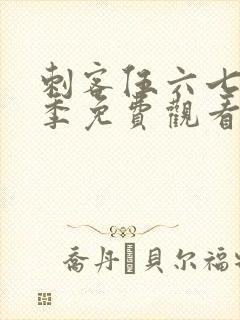 刺客伍六七
季免費觀看
喬丹·貝尔福